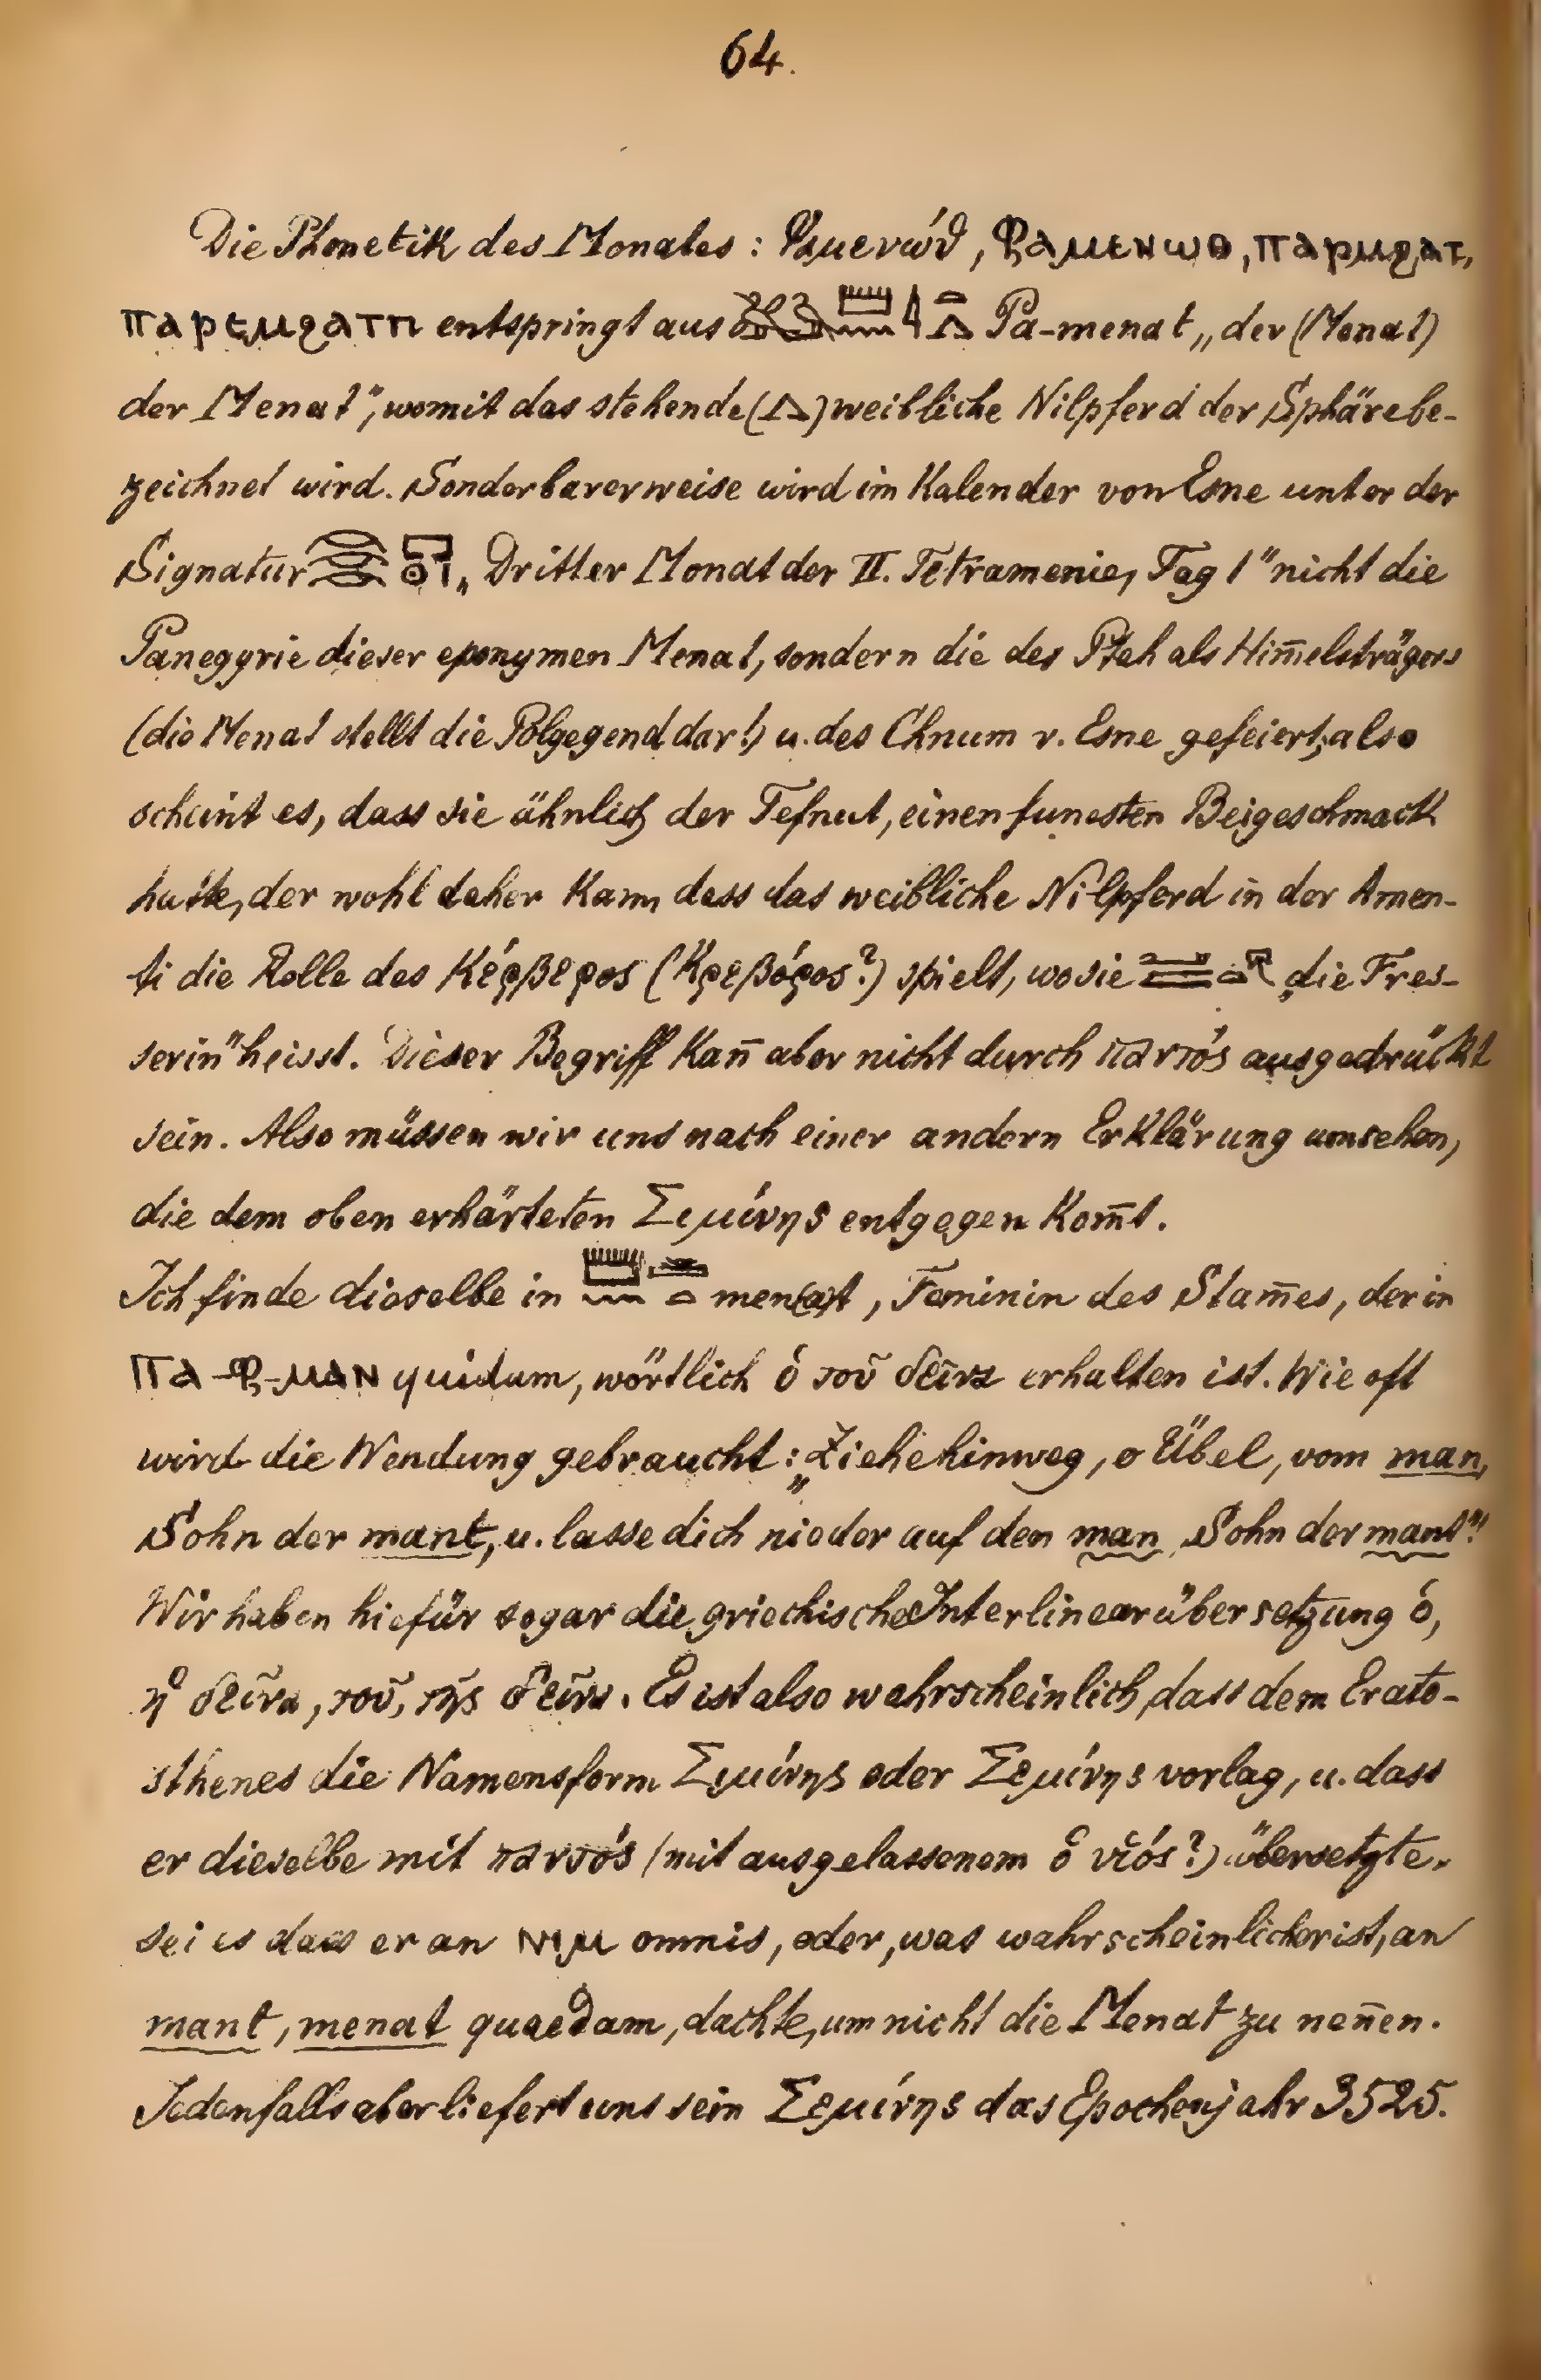 64.
Die Phonetik des Monates: Φαμενώθ, Ⲫⲁⲙⲉⲛⲱⲑ, ⲡⲁⲣⲙϩⲁⲧ,
ⲡⲁⲣⲉⲙϩⲁⲧⲡ entspringt aus Pa-menat „der (Monat)
der Menat", womit das stehende (𓂻) weibliche Nilpferd der Sphäre be-
zeichnet wird. Sonderbarerweise wird im Kalender von Esne unter der
Signatur „Dritter Monat der II. Tetramenie, Tag 1" nicht die
Panegyrie dieser eponymen Menat, sondern die des Ptah als Him̄elsträgers
(die Menat stellt die Polgegend dar!) u. des Chnum v. Esne gefeiert; also
scheint es, dass sie ähnlich der Tefnut, einen funesten Beigeschmack
hatte, der wohl daher kam, dass das weibliche Nilpferd in der Amen-
ti die Rolle des Κέρβερος (Κρεβόρος?) spielt, wo sie „die Fres-
serin" heisst. Dieser Begriff kan̄ aber nicht durch παντός ausgedrückt
sein. Also müssen wir uns nach einer andern Erklärung umsehen,
die dem oben erhärteten Σεμίνης entgegen kom̄t.
Ich finde dieselbe in men(a)t, Feminin des Stam̄es, der in
ⲡⲁ-ⲫ-ⲙⲁⲛ quidam, wörtlich ὁ τοῦ δεῖνα erhalten ist. Wie oft
wird die Wendung gebraucht: „Ziehe hinweg, o Übel, vom man,
Sohn der mant, u. lasse dich nieder auf den man, Sohn der mant"!
Wir haben hiefür sogar die griechische Interlinearübersetzung ὁ,
ἡ δεῖνα, τοῦ, τῆς δεῖνα. Es ist also wahrscheinlich, dass dem Erato-
sthenes die Namensform Σεμίνης oder Σεμίνης vorlag, u. dass
er dieselbe mit παντός (mit ausgelassenem ὁ υἱός?) übersetzte,
sei es dass er an ⲛⲓⲙ omnis, oder, was wahrscheinlicher ist, an
mant, menat quaedam, dachte, um nicht die Menat zu nen̄en.
Jedenfalls aber liefert uns sein Σεμίνης das Epochenjahr 3525.